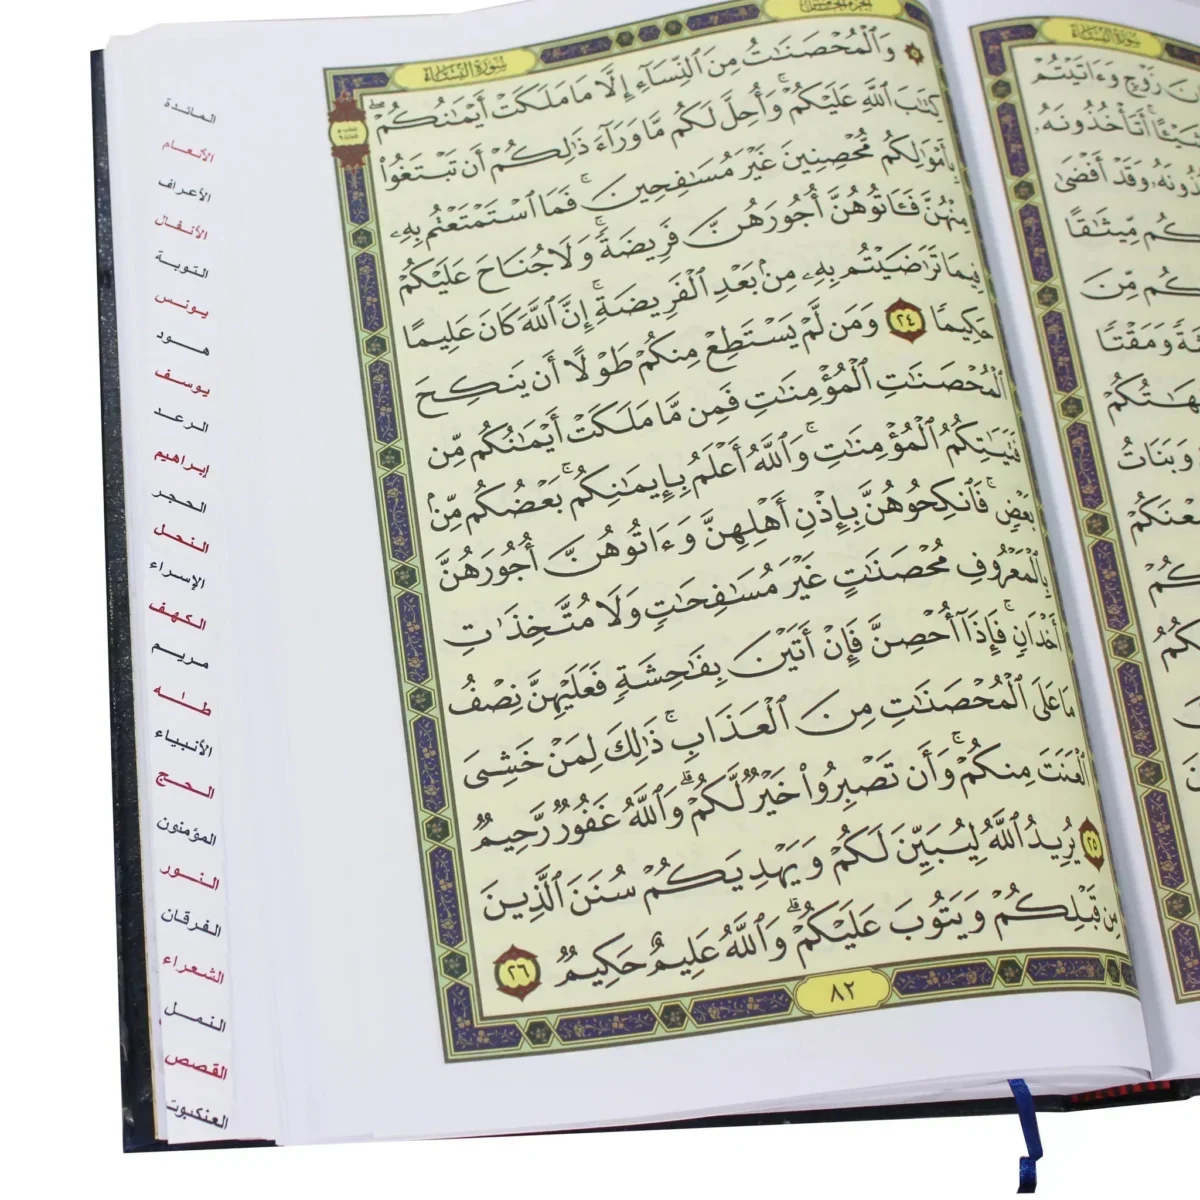 سُورَةُ النِّسَاءِ
وَٱلْمُحْصَنَٰتُ مِنَ ٱلنِّسَآءِ إِلَّا مَا مَلَكَتْ أَيْمَٰنُكُمْ ۖ
كِتَٰبَ ٱللَّهِ عَلَيْكُمْ ۚ وَأُحِلَّ لَكُم مَّا وَرَآءَ ذَٰلِكُمْ أَن تَبْتَغُوا۟
بِأَمْوَٰلِكُم مُّحْصِنِينَ غَيْرَ مُسَٰفِحِينَ ۚ فَمَا ٱسْتَمْتَعْتُم بِهِۦ
مِنْهُنَّ فَـَٔاتُوهُنَّ أُجُورَهُنَّ فَرِيضَةً ۚ وَلَا جُنَاحَ عَلَيْكُمْ
فِيمَا تَرَٰضَيْتُم بِهِۦ مِنۢ بَعْدِ ٱلْفَرِيضَةِ ۚ إِنَّ ٱللَّهَ كَانَ عَلِيمًا
حَكِيمًا ٢٤ وَمَن لَّمْ يَسْتَطِعْ مِنكُمْ طَوْلًا أَن يَنكِحَ
ٱلْمُحْصَنَٰتِ ٱلْمُؤْمِنَٰتِ فَمِن مَّا مَلَكَتْ أَيْمَٰنُكُم مِّن
فَتَيَٰتِكُمُ ٱلْمُؤْمِنَٰتِ ۚ وَٱللَّهُ أَعْلَمُ بِإِيمَٰنِكُم ۚ بَعْضُكُم مِّنۢ
بَعْضٍ ۚ فَٱنكِحُوهُنَّ بِإِذْنِ أَهْلِهِنَّ وَءَاتُوهُنَّ أُجُورَهُنَّ
بِٱلْمَعْرُوفِ مُحْصَنَٰتٍ غَيْرَ مُسَٰفِحَٰتٍ وَلَا مُتَّخِذَٰتِ
أَخْدَانٍ ۚ فَإِذَآ أُحْصِنَّ فَإِنْ أَتَيْنَ بِفَٰحِشَةٍ فَعَلَيْهِنَّ نِصْفُ
مَا عَلَى ٱلْمُحْصَنَٰتِ مِنَ ٱلْعَذَابِ ۚ ذَٰلِكَ لِمَنْ خَشِىَ
ٱلْعَنَتَ مِنكُمْ ۚ وَأَن تَصْبِرُوا۟ خَيْرٌ لَّكُمْ ۗ وَٱللَّهُ غَفُورٌ رَّحِيمٌ
٢٥ يُرِيدُ ٱللَّهُ لِيُبَيِّنَ لَكُمْ وَيَهْدِيَكُمْ سُنَنَ ٱلَّذِينَ
مِن قَبْلِكُمْ وَيَتُوبَ عَلَيْكُمْ ۗ وَٱللَّهُ عَلِيمٌ حَكِيمٌ ٢٦
٨٢
المائدة
الأنعام
الأعراف
الأنفال
التوبة
يونس
هود
يوسف
الرعد
إبراهيم
الحجر
النحل
الإسراء
الكهف
مريم
طـٰه
الأنبياء
الحج
المؤمنون
النور
الفرقان
الشعراء
النمل
القصص
العنكبوت
سُورَةُ النِّسَاءِ
زَوْجٍ وَءَاتَيْتُمْ
أَتَأْخُذُونَهُۥ
وَقَدْ أَفْضَىٰ
مِّيثَٰقًا
مِّنَ
وَمَقْتًا
وَبَنَاتُ